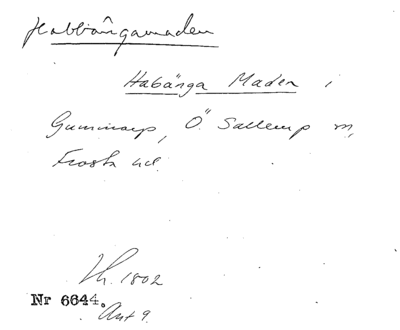 Habbängamaden
Habänga Maden i
Gummarp, Ö. Sallerup sn,
Frosta hd.
Lh. 1802
Nr 6644.
Akt 9.